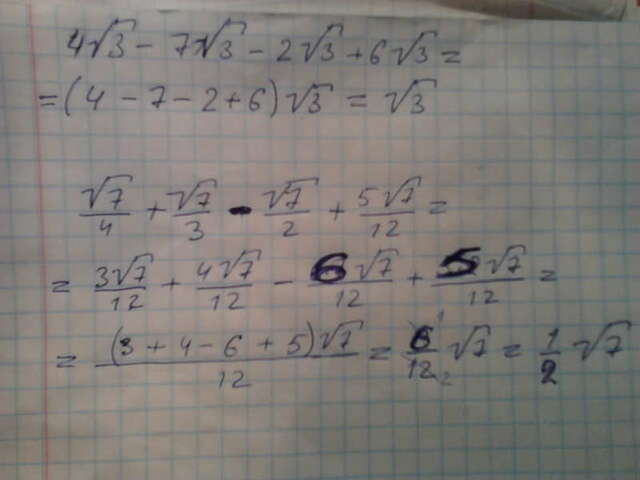 4√3 - 7√3 - 2√3 + 6√3 =
= (4 - 7 - 2 + 6)√3 = √3
√7/4 + √7/3 - √7/2 + 5√7/12 =
= 3√7/12 + 4√7/12 - 6√7/12 + 5√7/12 =
= (3 + 4 - 6 + 5)√7/12 = 6¹/12₂ √7 = 1/2 √7